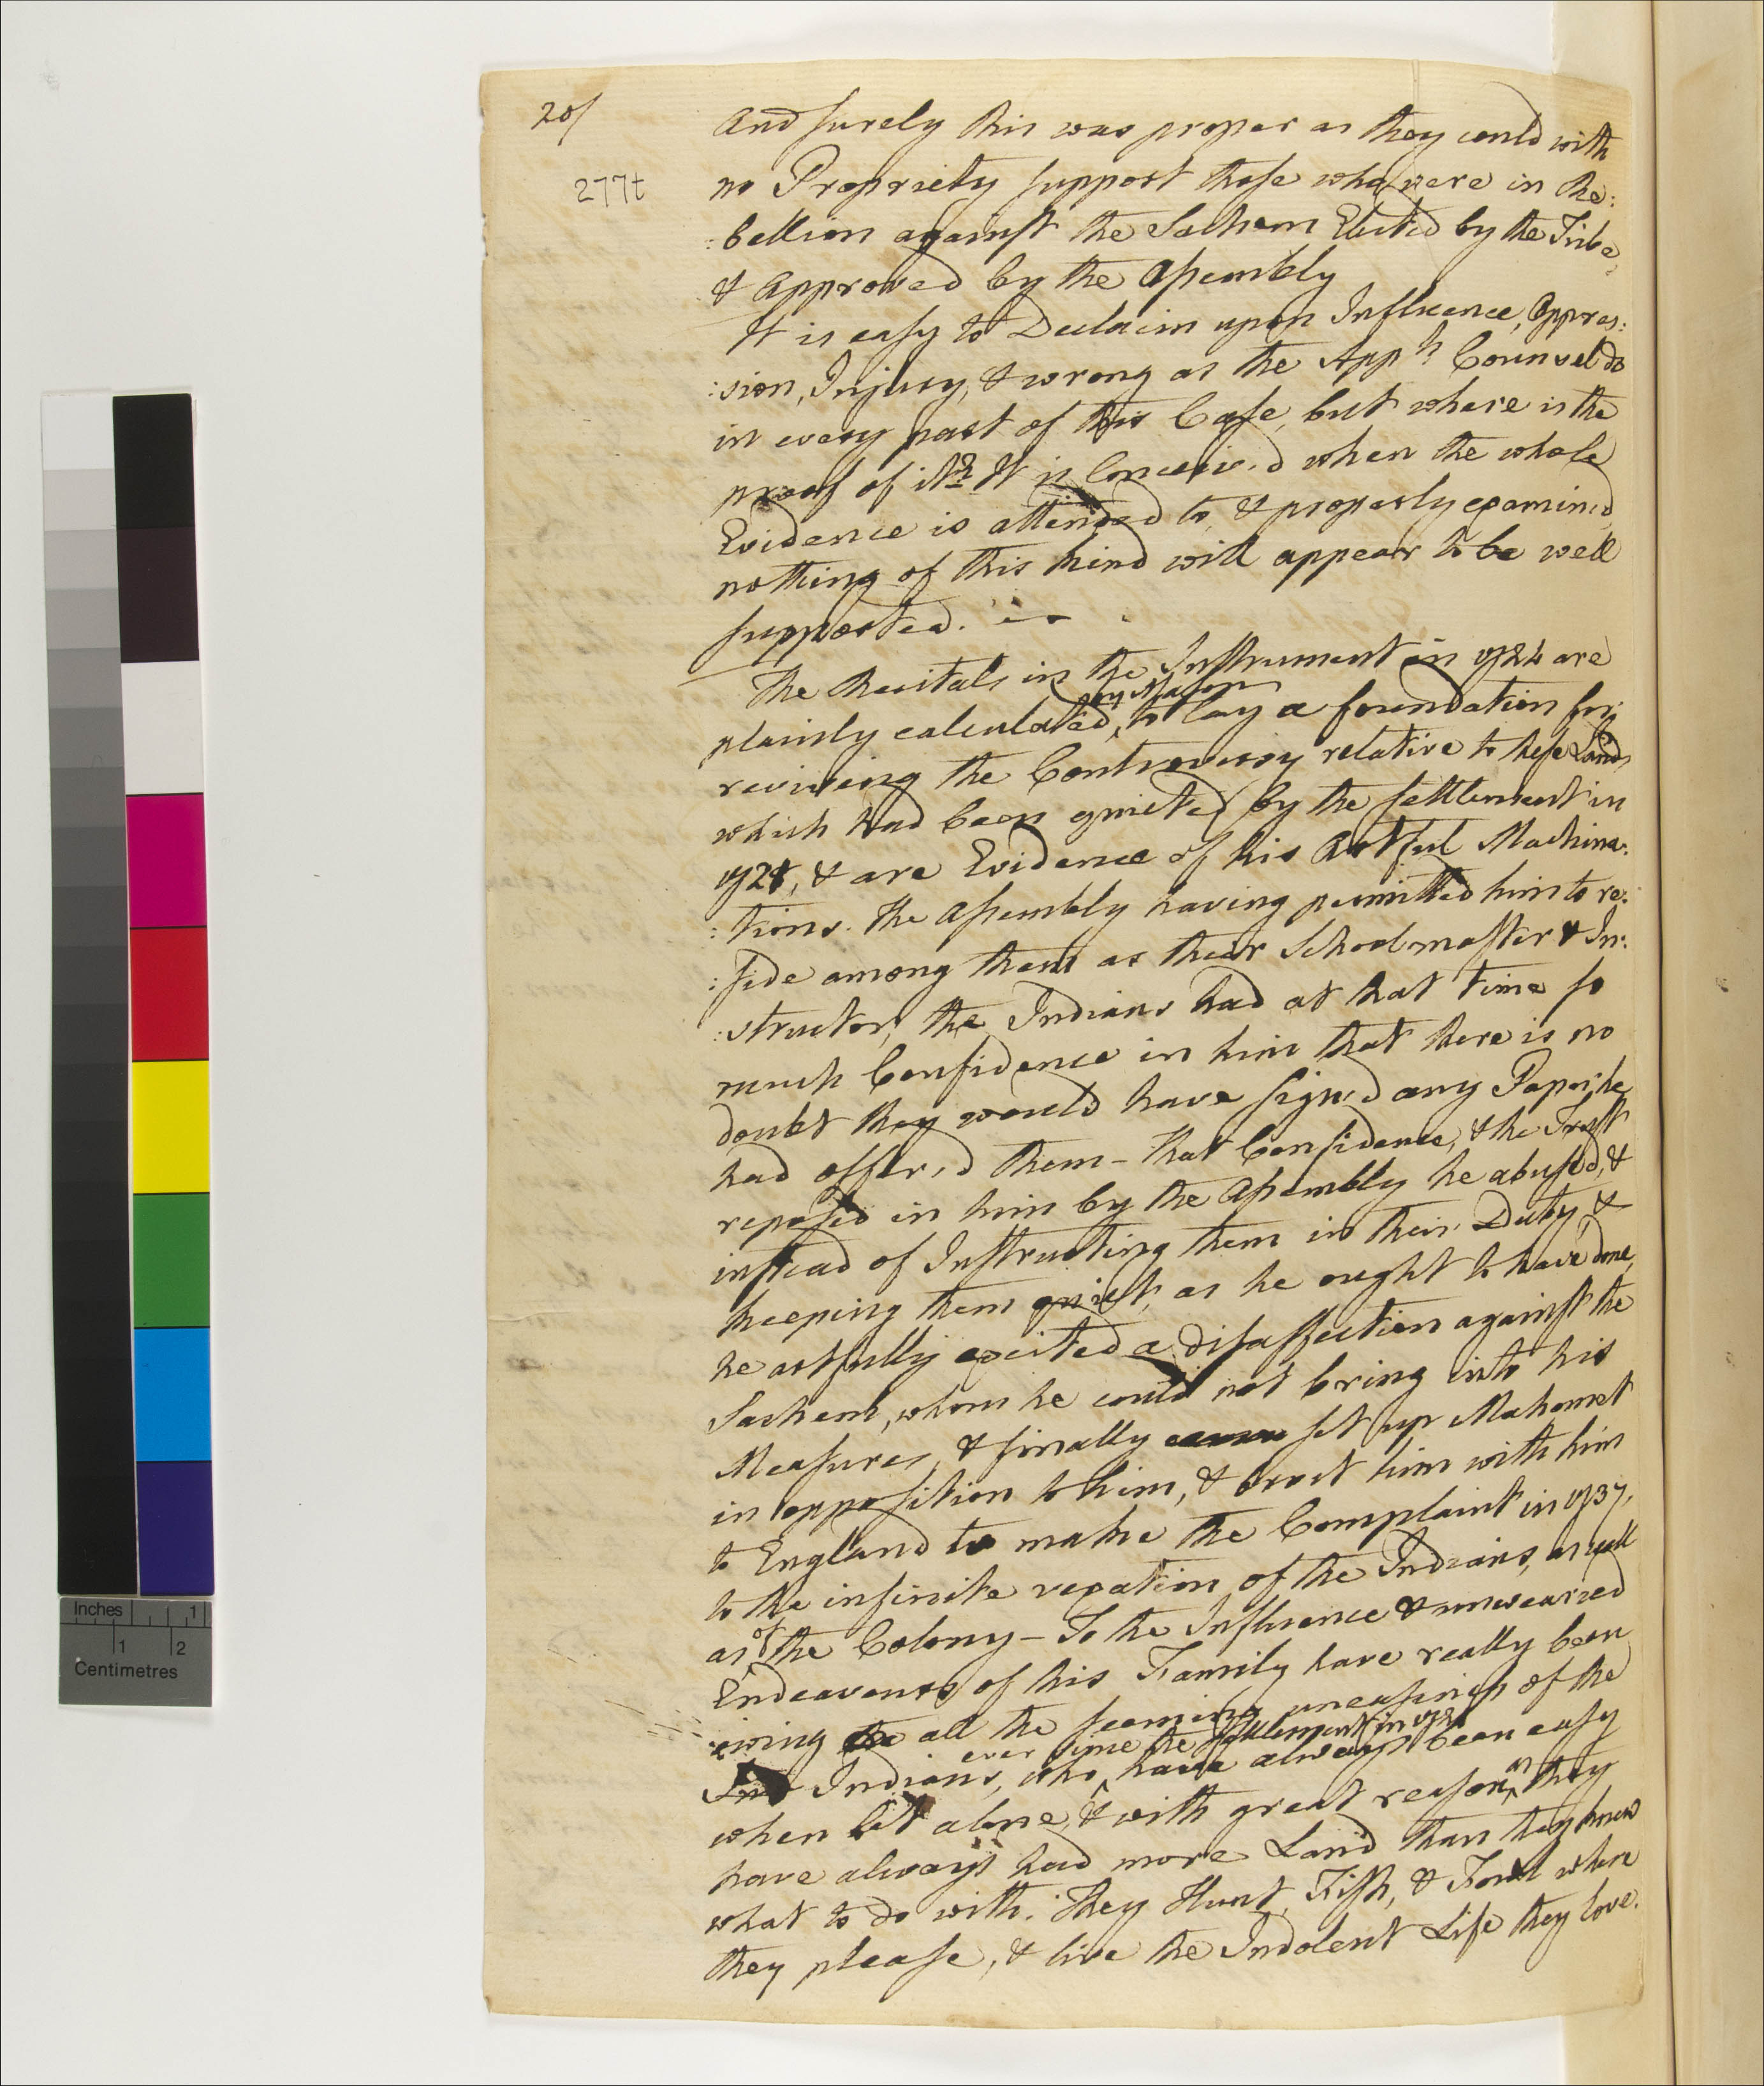 20/
277t
And surely this was proper as they could with
no Propriety support those who were in Re:
:bellion against the Sachem Elected by the Tribe,
& Approved by the Assembly
It is easy to Declaim upon Influence, Oppres:
:sion, Injury, & wrong as the Appts Counsel do
in every part of this Case, but where is the
proof of it? It is Conceiv'd when the whole
Evidence is attended to, & properly examined
nothing of this kind will appear to be well
supported.
The Recitals in the Instrument in 1724 are
by Mason
plainly calculated, to lay a foundation for
reviving the Controversy relative to these Lands
which had been quieted by the settlement in
1721, & are Evidence of his Artful Machina:
:tions. The Assembly having permitted him to re:
:side among them as their Schoolmaster & In:
:structor, the Indians had at that time so
much Confidence in him that there is no
doubt they would have signed any Paper he
had offer'd them - That Confidence, & the Trust
reposed in him by the Assembly he abused, &
instead of Instructing them in their Duty &
keeping them quiet, as he ought to have done,
he artfully excited a disaffection against the
Sachem, whom he could not bring into his
Measures, & finally set up Mahomet
in opposition to him, & took him with him
to England to make the Complaint in 1737,
to the infinite vexation of the Indians, as well
as of the Colony - To the Influence & unwearied
Endeavours of his Family have really been
owing all the seeming uneasiness of the
ever since the settlement in 1721
Indians, who have always been easy
when let alone, & with great reason as they
have always had more Land than they knew
what to do with. They Hunt, Fish, & Fowl when
they please, & live the Indolent Life they love.
Inches 1
1 2
Centimetres